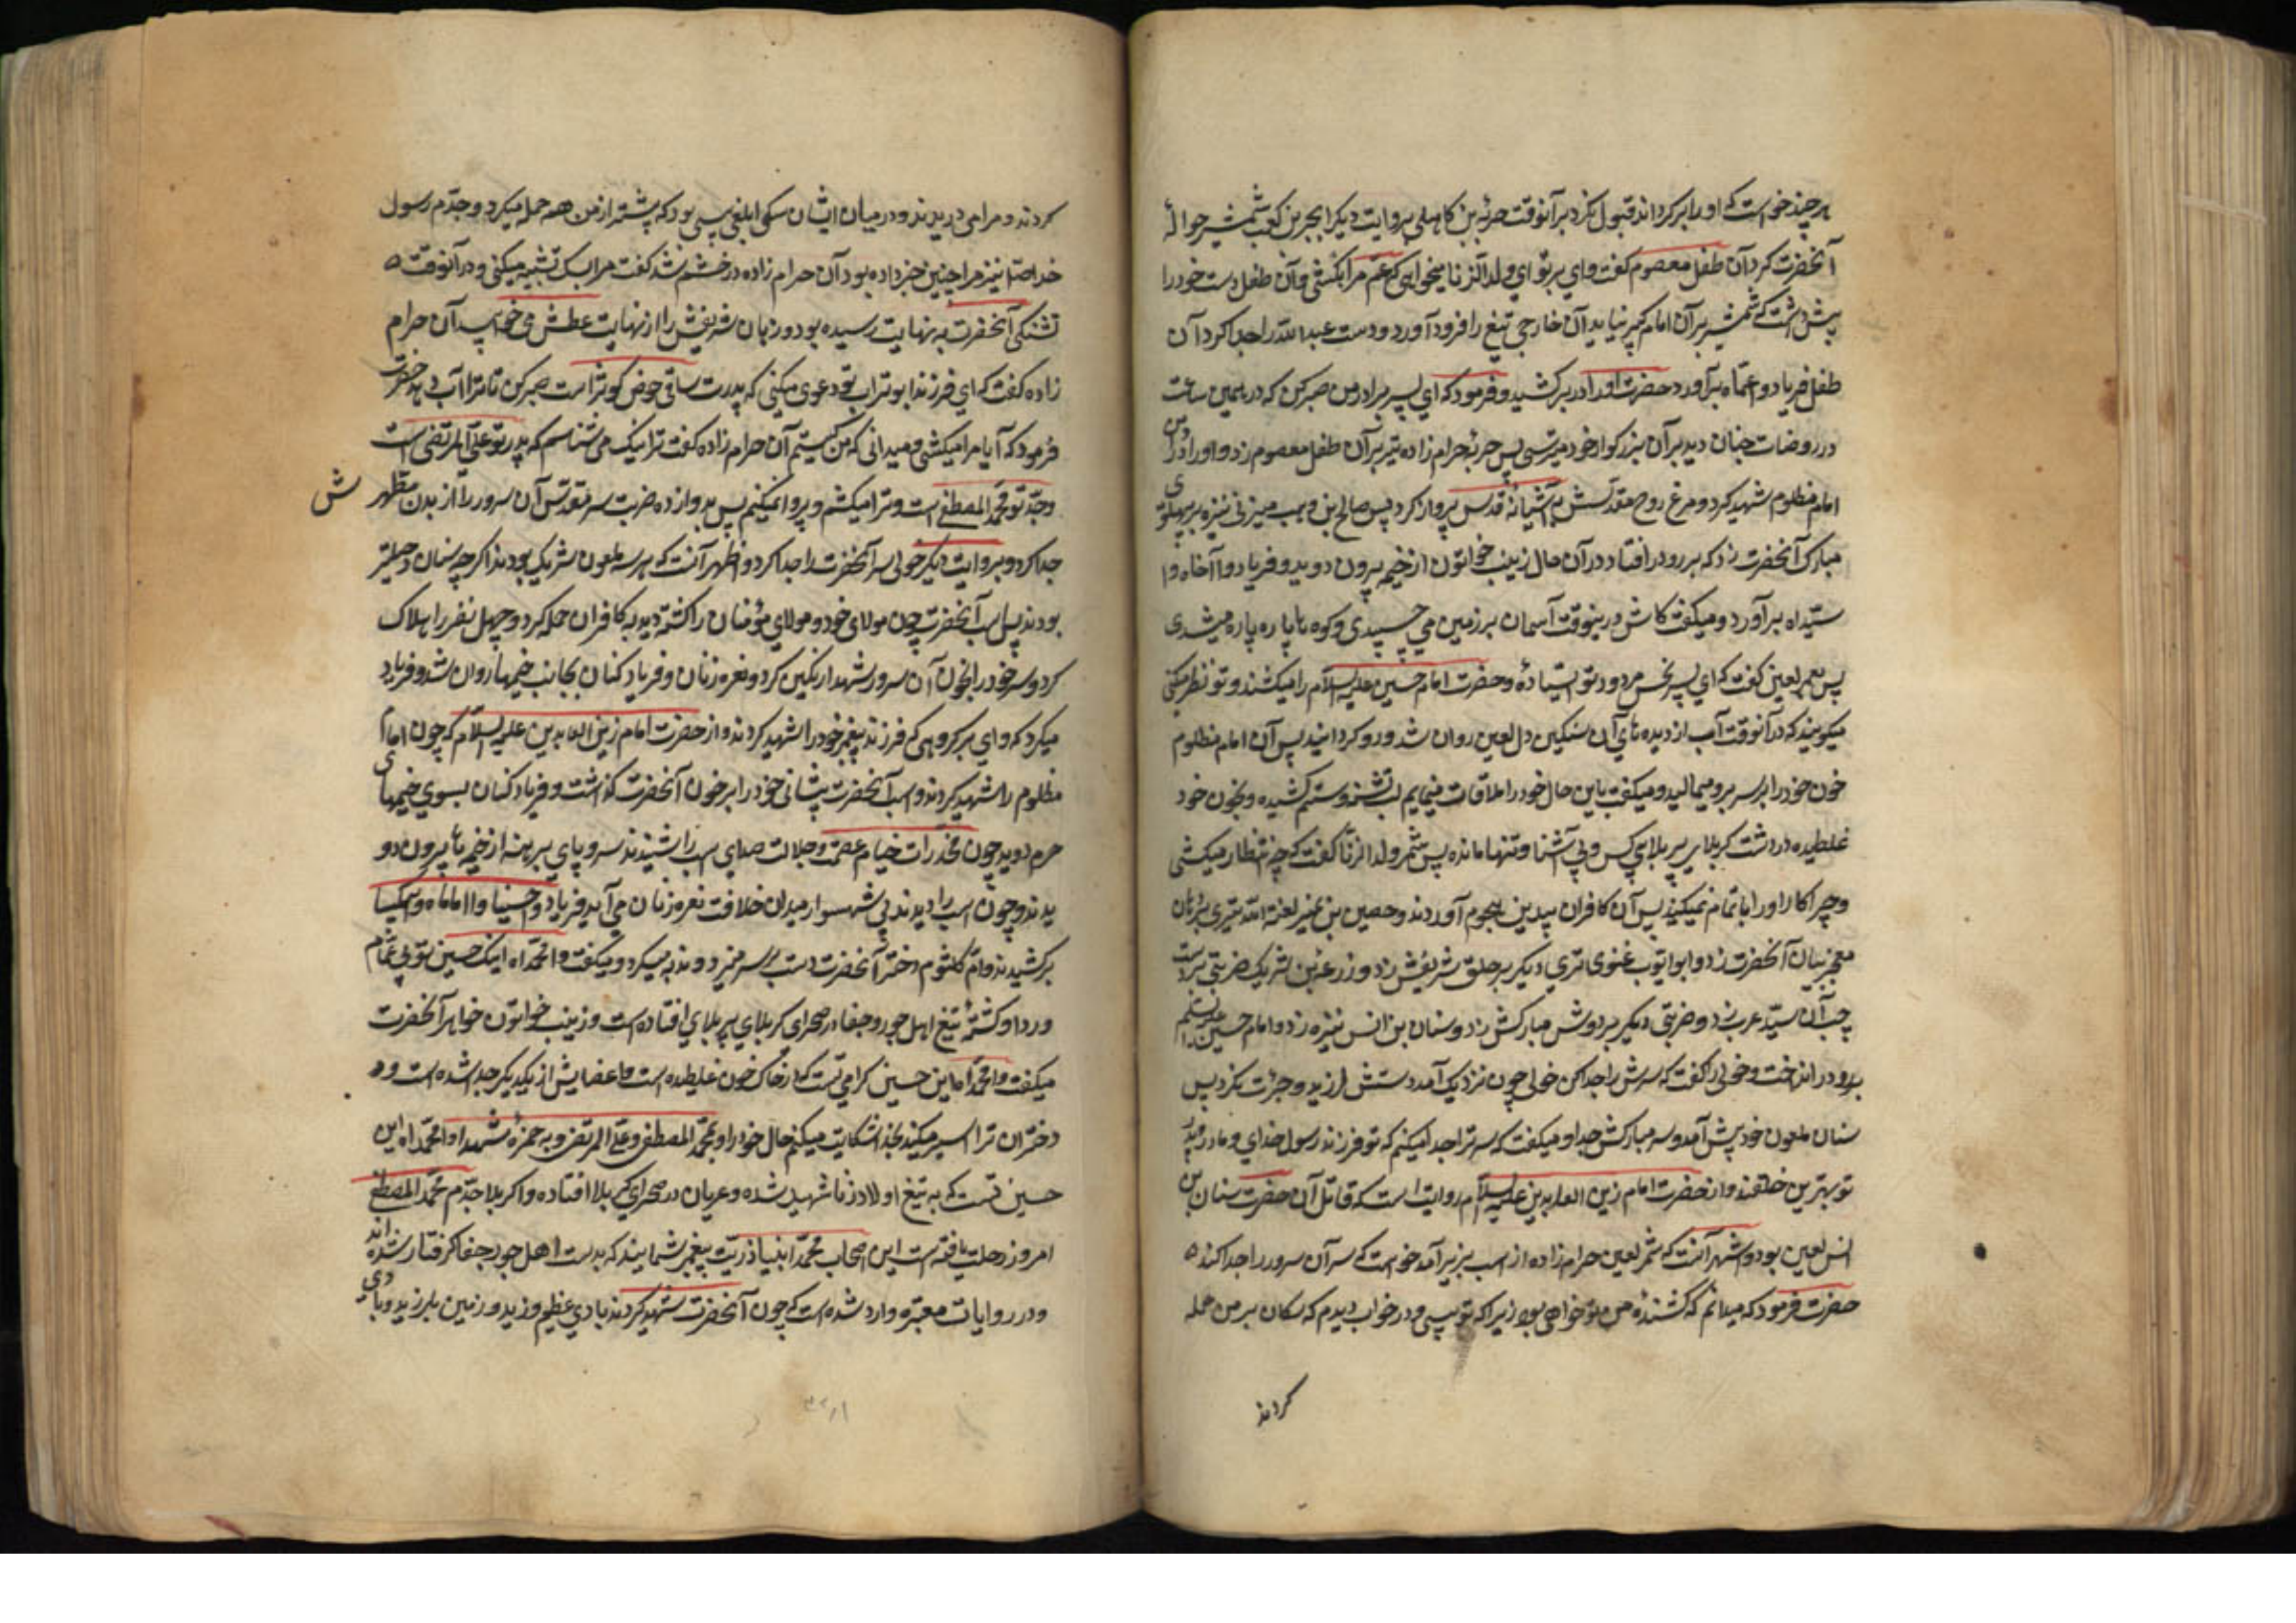 هر چند خواست که او را برگرداند قبول نکرد برآنوقت حرمله بن کاهلی بروایت دیگر ابجر بن کعب شمشیر حوالهٔ
آنحضرت کرد آن طفل معصوم گفت وای بر تو ای ولد الزنا میخواهی که عم مرا بکشی و آن طفل دست خود را
پیش داشت که شمشیر بر آن امام کبیر نیاید آن خارجی تیغ را فرود آورد و دست عبدالله را جدا کرد آن
طفل فریاد وا عماه برآورد حضرت او را در بر کشید و فرمود که ای پسر برادر من صبر کن که در همین ساعت
در روضات جنان دید برآن بزرگوار خود میرسی پس حرمله حرام زاده تیر بر آن طفل معصوم زد و او را در
امام مظلوم شهید کرد و مرغ روح مقدسش بآشیانهٔ قدس پرواز کرد پس صالح بن وهب مزنی نیزه بر پهلوی
مبارک آنحضرت زد که بر رو در افتاد در آن حال زینب خواتون از خیمه بیرون دوید و فریاد وا آخاه وا
سیداه برآورد و میگفت کاش درینوقت آسمان بر زمین می چسپیدی و کوه ها پاره پاره میشدی
پس بعمر لعین گفت که ای پسر نحس مردود تو ایستادهٔ و حضرت امام حسین علیه السلام را میکشند و تو نظر میکنی
میگویند که در آنوقت آب از دیده های آن سنکین دل لعین روان شد و رو گردانید پس آن امام مظلوم
خون خود را بر سر و رو میمالید و میگفت باین حال خود را ملاقات مینمایم لب تشنه و ستم کشیده و بخون خود
غلطیده در دشت کربلای پر بلا بی کس و بی آشنا و تنها مانده پس شمر ولد الزنا گفت که چه انتظار میکشی
و چرا کار او را تمام نمیکنید پس آن کافران بیدین هجوم آوردند و حصین بن نمیر لعنة الله تیری بر دهان
معجز بیان آنحضرت زد و ابو ایوب غنوی تری دیگر بر حلق شریفش زد و زرعه بن شریک ضربتی بر دست
چپ آن سید عرب زد و ضربتی دیگر بر دوش مبارکش زد و سنان بن انس نیزه زد و امام حسین علیه السلام را
بر رو در انداخت و خولی را گفت که سرش را جدا کن خولی چون نزدیک آمد دستش لرزید و جرئت نکرد پس
سنان ملعون خود پیش آمد و سر مبارکش جدا و میگفت که سر ترا جدا میکنم که تو فرزند رسول خدای و مادر و پدر
تو بهترین خلقند و از حضرت امام زین العابدین علیه السلام روایت است که قاتل آن حضرت سنان بن
انس لعین بود و اشهر آنست که شمر لعین حرام زاده از اسب بزیر آمد خواست که سر آن سرور را جدا کند
حضرت فرمود که میدانم که کشندهٔ من تو خواهی بود زیرا که تو پیسی و در خواب دیدم که سکان بر من حمله
کردند
کردند و مرا می دریدند و در میان ایشان سکی ابلغی پسی بود که بیشتر از من همه حمله میکرد و جدم رسول
خدا صلعم نیز مرا چنین خبر داده بود آن حرام زاده در خشم شد گفت مرا بسک تشبیه میکنی و در آنوقت
تشنگی آنحضرت به نهایت رسیده بود و زبان شریفش را از نهایت عطش می خوایید آن حرام
زاده گفت که ای فرزند ابو تراب تو دعوی میکنی که پدرت ساقی حوض کوثر است صبر کن تا ترا آب دهد حضرت
فرمود که آیا مرا میکشی و میدانی که من کیستم آن حرام زاده گفت ترا نیک می شناسم که پدر تو علی المرتضی است
و جد تو محمد المصطفی است و ترا میکشم و پروا نمیکنم پس بدوازده ضربت سر مقدس آن سرور را از بدن مطهرش
جدا کرد و بروایت دیگر خولی سر آنحضرت را جدا کرد و اظهر آنست که هر سه ملعون شریک بودند اگرچه سنان و
بودند پس اسب آنحضرت چون مولای خود و مولای مؤمنان را کشته دید بر کافران حمله کرد و چهل نفر را هلاک
کرد و سر خود را بخون آن سرور شهدا رنگین کرد و نعره زنان و فریاد کنان بجانب خیمها روان شد و فریاد
میکرد که وای بر گروهی که فرزند پیغمبر خود را شهید کردند و از حضرت امام زین العابدین علیه السلام که چون امام
مظلوم را شهید کردند و اسب آنحضرت پیشانی خود را بر خون آنحضرت گذاشت و فریاد کنان بسوی خیمهای
حرم دوید چون مخدرات خیام عصمت و جلالت صدای اسب را شنیدند سر و پای برهنه از خیمه ها بیرون دو
یدند و چون اسب را دیدند بی شهسوار میدان خلافت نعره زنان می آید فریاد واحسینا وا اماماه و
برکشیدند و ام کلثوم دختر آنحضرت دست بر سر میزد و ندبه میکرد و میگفت وا محمداه اینک حسین تو بی عمامه
و ردا و کشتهٔ تیغ اهل جور و جفا در صحرای کربلای پر بلای افتاده است و زینب خواتون خواهر آنحضرت
میگفت وا محمداه این حسین گرامی تست که در خاک خون غلطیده است و اعضایش از یکدیگر جدا شده است و
دختران ترا اسیر میکنند بخدا شکایت میکنم حال خود را و بمحمد المصطفی و علی المرتضی و به حمزهٔ شهدا وا محمداه این
حسین تست که به تیغ اولاد زنا شهید شده و عریان در صحرای کربلا افتاده وا کربلا جدم محمد المصطفی
امروز رحلت یافته است این اصحاب محمد اینها ذریت پیغمبر شمایند که بدست اهل جور و جفا گرفتار شده اند
و در روایات معتبره وارد شده است که چون آنحضرت شهید کردند بادی عظیم وزید و زمین بلرزید و